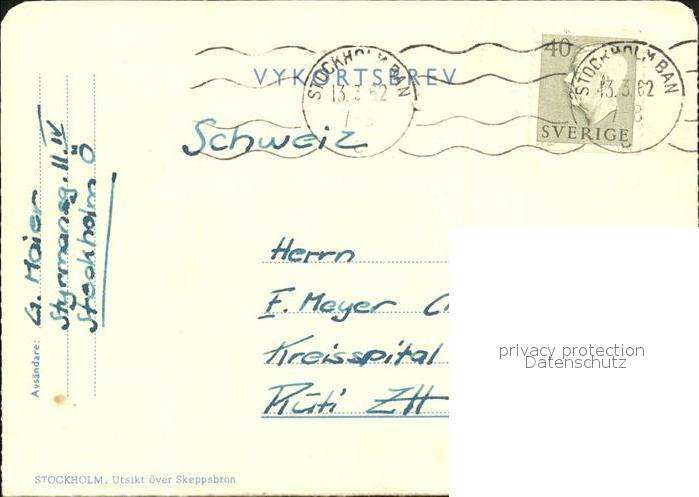 VYKORTSBREV
STOCKHOLM BAN
13.3.62
40
STOCKHOLM BAN
13.3.62
SVERIGE
Schweiz
Herrn
F. Meyer
Kreisspital
Rüti ZH
Avsändare: G. Maier
Styrmansg. 11. IV
Stockholm Ö
privacy protection
Datenschutz
STOCKHOLM. Utsikt över Skeppsbron